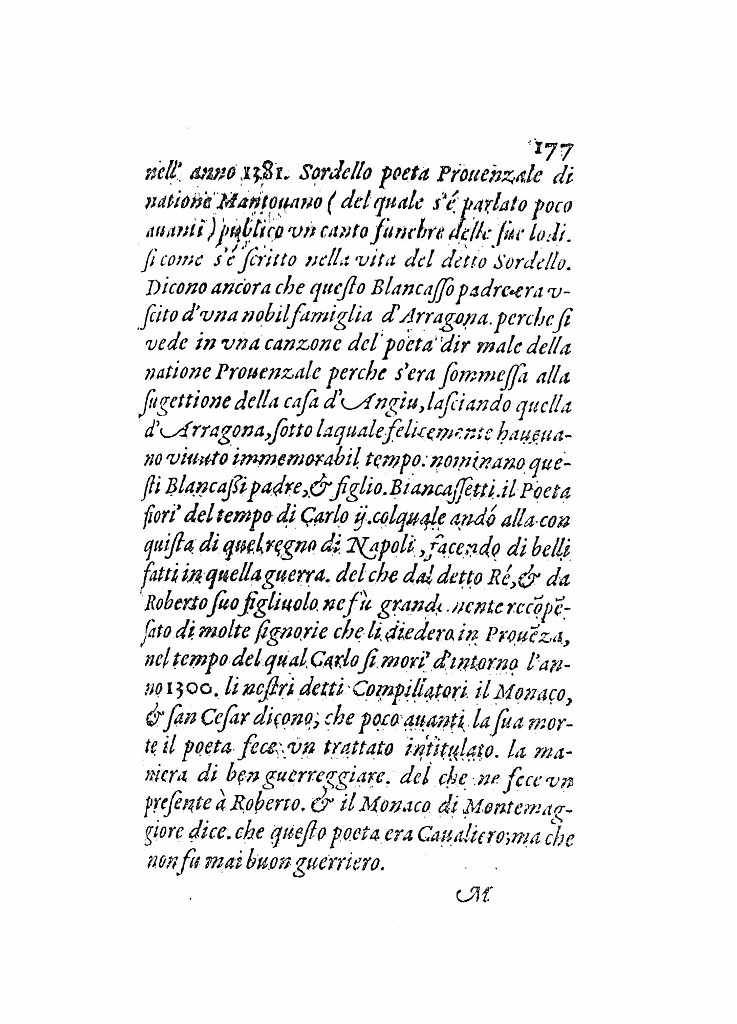 177
nell' anno 1381. Sordello poeta Prouenzale di
natione Mantouano ( del quale s'é parlato poco
auanti ) publicò vn canto funebre delle ſue lodi.
ſi come s'é ſcritto nella vita del detto Sordello.
Dicono ancora che queſto Blancaſſo padre era v-
ſcito d'vna nobil famiglia d'Arragona. perche ſi
vede in vna canzone del poeta dir male della
natione Prouenzale perche s'era ſommeſſa alla
ſugettione della caſa d'Angiu, laſciando quella
d'Arragona, ſotto laquale felicemente haueua-
no viuuto immemorabil tempo. nominano que-
ſti Blancaßi padre, & figlio. Biancaſſetti. il Poeta
fiori' del tempo di Carlo ij. colquale andó alla con
quiſta di quel regno di Napoli, facendo di belli
fatti in quella guerra. del che dal detto Ré, & da
Roberto ſuo figliuolo ne fù grandemente recōpē-
ſato di molte ſignorie che li diedero in Prouēza,
nel tempo del qual Carlo ſi mori' d'intorno l'an-
no 1300. li noſtri detti Compilatori il Monaco,
& ſan Ceſar dicono, che poco auanti la ſua mor-
te il poeta fece vn trattato intitulato. la ma-
niera di ben guerreggiare. del che ne fece vn
preſente à Roberto. & il Monaco di Montemag-
giore dice. che queſto poeta era Caualiero; ma che
non fu mai buon guerriero.
M